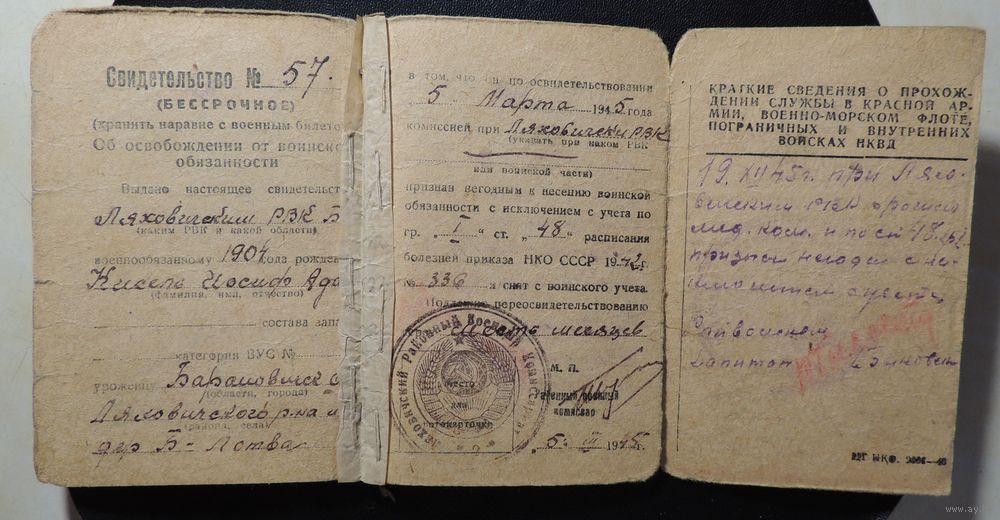 Свидетельство № 57.
(БЕССРОЧНОЕ)
(хранить наравне с военным билето
Об освобождении от воинско
обязанности
Выдано настоящее свидетельст
Ляховичским РВК Б
(каким РВК и какой области)
военнообязанному 1904 года рожден
Кисель Иосиф Ада
(фамилия, имя, отчество)
состава запа
категория ВУС №
уроженцу Барановичск о
(области, города)
Ляховичского р-на
(района, села)
дер Б-Лотва
в том, что он по освидетельствовании
5 Марта 1945 года
комиссией при Ляховичски РВК
(указать при каком РВК
или воинской части)
признан негодным к несению воинской
обязанности с исключением с учета по
гр. „ I “ ст. „ 48 “ расписания
болезней приказа НКО СССР 1942 г.
№ 336 и снят с воинского учета.
Подлежит переосвидетельствованию
Шесть месяцев
Ляховичский Районный Военный Комиссариат
место
для
фотокарточки
М. П.
Районный военный
комиссар
„ 5 “ III 1945 г.
КРАТКИЕ СВЕДЕНИЯ О ПРОХОЖ-
ДЕНИИ СЛУЖБЫ В КРАСНОЙ АР-
МИИ, ВОЕННО-МОРСКОМ ФЛОТЕ,
ПОГРАНИЧНЫХ И ВНУТРЕННИХ
ВОЙСКАХ НКВД
19. XII 45 г. при Ляхо-
вичским РВК прошел
мед. ком. и по ст 48
признан негоден с
учета
Райвоенком
капитан
www.ay.by